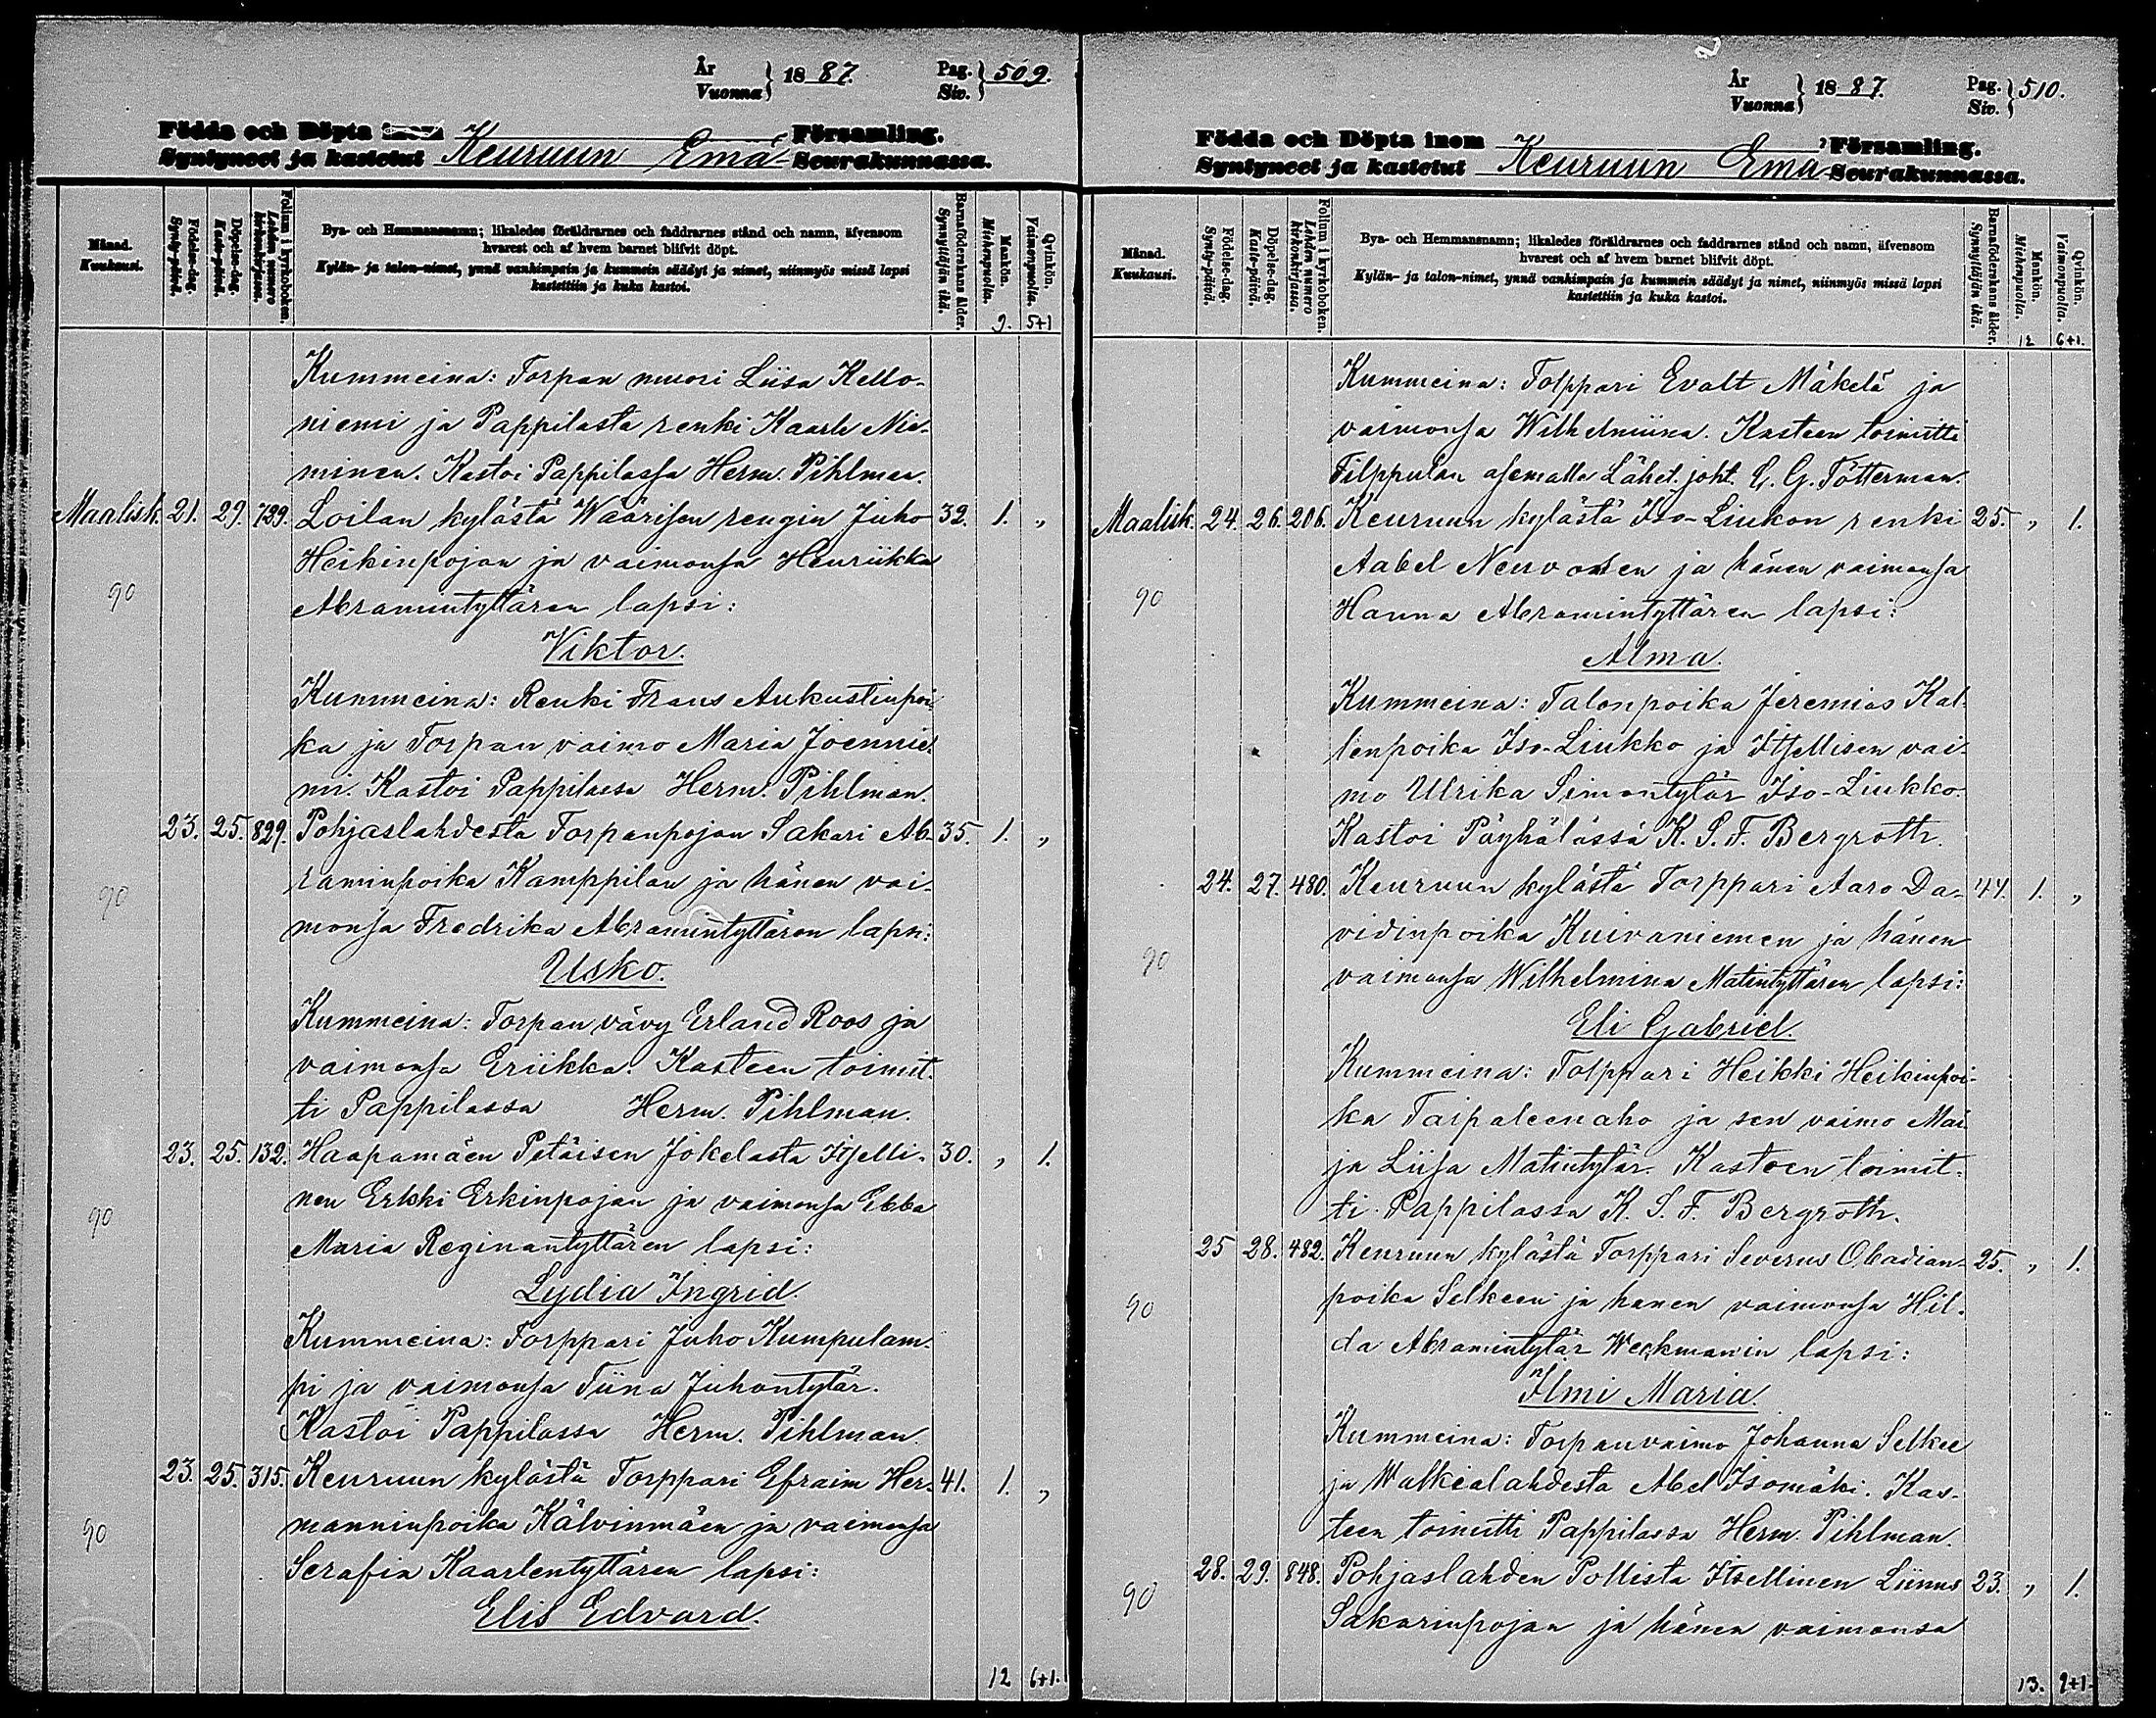 År
Vuonna } 18 87. Pag.
Siv. } 509.
Födda och Döpta inom Församling.
Syntyneet ja kastetut Keuruun Emä- Seurakunnassa.
Månad.
Kuukausi.
Födelse-dag.
Synty-päivä.
Döpelse-dag.
Kaste-päivä.
Folium i kyrkoboken.
Lehden numero
kirkonkirjassa.
Bya- och Hemmansnamn; likaledes föräldrarnes och faddrarnes stånd och namn, äfvensom
hvarest och af hvem barnet blifvit döpt.
Kylän- ja talon-nimet, ynnä vanhimpain ja kummein säädyt ja nimet, niinmyös missä lapsi
kastettiin ja kuka kastoi.
Barnaföderskans ålder.
Synnyttäjän ikä.
Mankön.
Miehenpuolia.
Qvinkön.
Vaimonpuolia.
9. 5+1
Kummeina: Torpan muori Liisa Kello-
niemi ja Pappilasta renki Kaarle Nie-
minen. Kastoi Pappilassa Herm. Pihlman.
Maalisk. 21. 29. 729. Loilan kylästä Wäärisen rengin Juho 32. 1. "
Heikinpojan ja vaimonsa Henriikka
90
Abramintyttären lapsi:
Viktor.
Kummeina: Renki Frans Aukustinpoi-
ka ja Torpan vaimo Maria Joennie-
mi. Kastoi Pappilassa Herm. Pihlman.
23. 25. 829. Pohjaslahdesta Torpanpojan Sakari Ab- 35. 1. "
raminpoika Kamppilan ja hänen vai-
90
monsa Fredrika Abramintyttären lapsi:
Usko.
Kummeina: Torpan vävy Erland Roos ja
vaimonsa Eriikka. Kasteen toimit-
ti Pappilassa Herm. Pihlman.
23. 25. 132. Haapamäen Petäisen Jokelasta Itselli- 30. " 1.
nen Erkki Erkinpojan ja vaimonsa Ebba
90
Maria Reginantyttären lapsi:
Lydia Ingrid.
Kummeina: Torppari Juho Kumpulam-
pi ja vaimonsa Tiina Juhontytär.
Kastoi Pappilassa Herm. Pihlman.
23. 25. 315. Keuruun kylästä Torppari Efraim Her- 41. 1. "
manninpoika Kälvinmäen ja vaimonsa
90
Serafia Kaarlentyttären lapsi:
Elis Edvard.
12 6+1.
År
Vuonna } 18 87. Pag.
Siv. } 510.
Födda och Döpta inom Församling.
Syntyneet ja kastetut Keuruun Emä Seurakunnassa.
Månad.
Kuukausi.
Födelse-dag.
Synty-päivä.
Döpelse-dag.
Kaste-päivä.
Folium i kyrkoboken.
Lehden numero
kirkonkirjassa.
Bya- och Hemmansnamn; likaledes föräldrarnes och faddrarnes stånd och namn, äfvensom
hvarest och af hvem barnet blifvit döpt.
Kylän- ja talon-nimet, ynnä vanhimpain ja kummein säädyt ja nimet, niinmyös missä lapsi
kastettiin ja kuka kastoi.
Barnaföderskans ålder.
Synnyttäjän ikä.
Mankön.
Miehenpuolia.
Qvinkön.
Vaimonpuolia.
12 6+1.
Kummeina: Torppari Evalt Mäkelä ja
vaimonsa Wilhelmiina. Kasteen toimitti
Filppulan asemalla Lähet. joht. C. G. Tötterman.
Maalisk. 24. 26. 206. Keuruun kylästä Iso-Liukon renki 25. " 1.
Aabel Neuvosen ja hänen vaimonsa
90
Hanna Abramintyttären lapsi:
Alma.
Kummeina: Talonpoika Jeremias Kal-
lenpoika Iso-Liukko ja Itsellisen vai-
mo Ulrika Simontytär Iso-Liukko.
Kastoi Päyhälässä K. S. F. Bergroth.
24. 27. 480. Keuruun kylästä Torppari Aaro Da- 44. 1. "
vidinpoika Kuivaniemen ja hänen
90
vaimonsa Wilhelmina Matintyttären lapsi:
Eli Gabriel.
Kummeina: Torppari Heikki Heikinpoi-
ka Taipaleenaho ja sen vaimo Mai-
ja Liisa Matintytär. Kasteen toimit-
ti Pappilassa K. S. F. Bergroth.
25 28. 482. Keuruun kylästä Torppari Severus Obadian- 25. " 1.
poika Selkeen ja hänen vaimonsa Hil-
90
da Abramintytär Weckmanin lapsi:
Ilmi Maria.
Kummeina: Torpanvaimo Johanna Selkee
ja Walkealahdesta Abel Isomäki. Kas-
teen toimitti Pappilassa Herm. Pihlman.
28. 29. 848. Pohjaslahden Pollista Itsellinen Liinus 23. " 1.
90
Sakarinpojan ja hänen vaimonsa
13. 9+1.